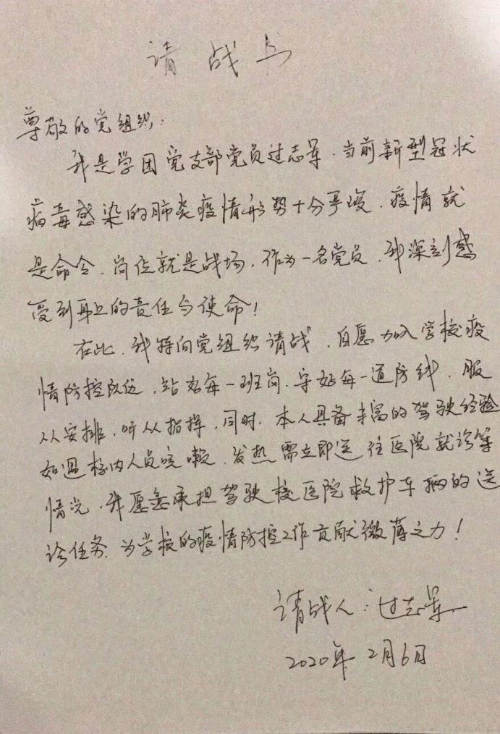 请战书
尊敬的党组织：
我是学团党支部党员过志军，当前新型冠状
病毒感染的肺炎疫情形势十分严峻，疫情就
是命令，岗位就是战场，作为一名党员，我深刻感
受到身上的责任与使命！
在此，我特向党组织请战，自愿加入学校疫
情防控队伍，站好每一班岗，守好每一道防线，服
从安排，听从指挥，同时，本人具备丰富的驾驶经验
如遇校内人员咳嗽、发热需立即送往医院就诊等
情况，我愿意承担驾驶校医院救护车辆的送
诊任务，为学校的疫情防控工作贡献微薄之力！
请战人：过志军
2020年2月6日